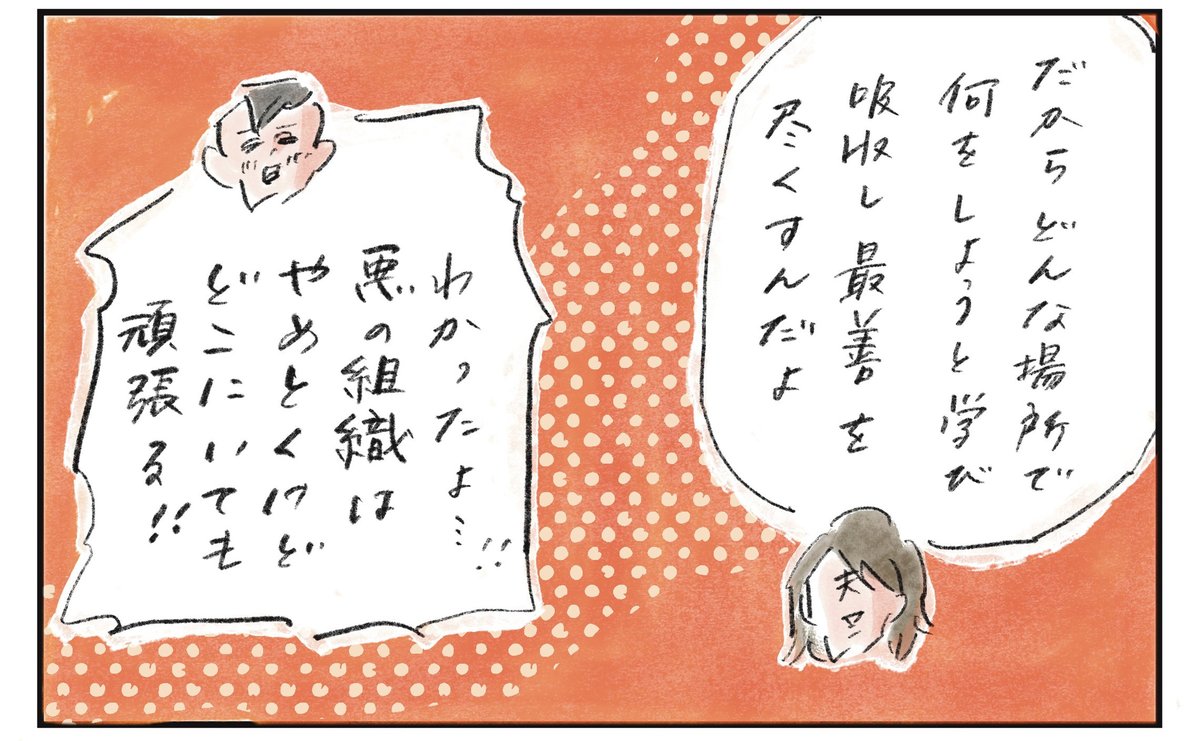 だからどんな場所で
何をしようと学び
吸収し最善を
尽くすんだよ
わかったよ…!!
悪の組織は
やめとくけど
どこにいても
頑張る!!